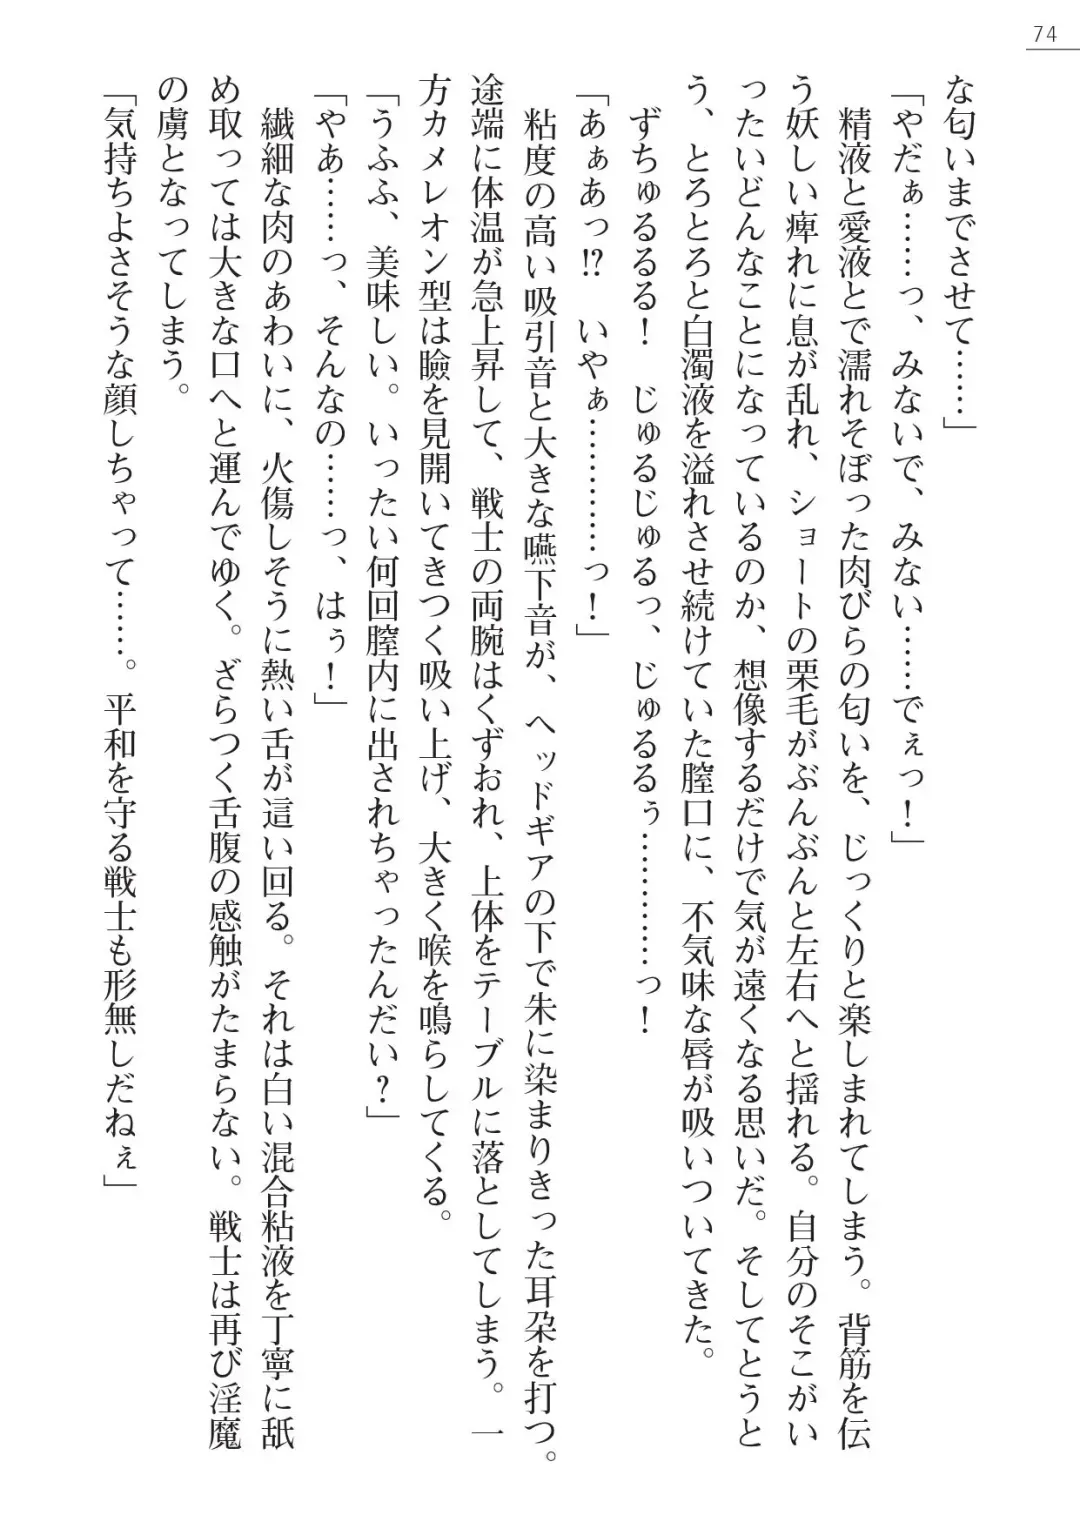 74
な匂いまでさせて……」
「やだぁ……っ、みないで、みない……でぇっ！」
　精液と愛液とで濡れそぼった肉びらの匂いを、じっくりと楽しまれてしまう。背筋を伝
う妖しい痺れに息が乱れ、ショートの栗毛がぶんぶんと左右へと揺れる。自分のそこがい
ったいどんなことになっているのか、想像するだけで気が遠くなる思いだ。そしてとうと
う、とろとろと白濁液を溢れさせ続けていた膣口に、不気味な唇が吸いついてきた。
　ずちゅるるる！　じゅるじゅるっ、じゅるるぅ…………っ！
「あぁあっ!?　いやぁ…………っ！」
　粘度の高い吸引音と大きな嚥下音が、ヘッドギアの下で朱に染まりきった耳朶を打つ。
途端に体温が急上昇して、戦士の両腕はくずおれ、上体をテーブルに落としてしまう。一
方カメレオン型は瞼を見開いてきつく吸い上げ、大きく喉を鳴らしてくる。
「うふふ、美味しい。いったい何回膣内に出されちゃったんだい？」
「やあ……っ、そんなの……っ、はぅ！」
　繊細な肉のあわいに、火傷しそうに熱い舌が這い回る。それは白い混合粘液を丁寧に舐
め取っては大きな口へと運んでゆく。ざらつく舌腹の感触がたまらない。戦士は再び淫魔
の虜となってしまう。
「気持ちよさそうな顔しちゃって……。平和を守る戦士も形無しだねぇ」